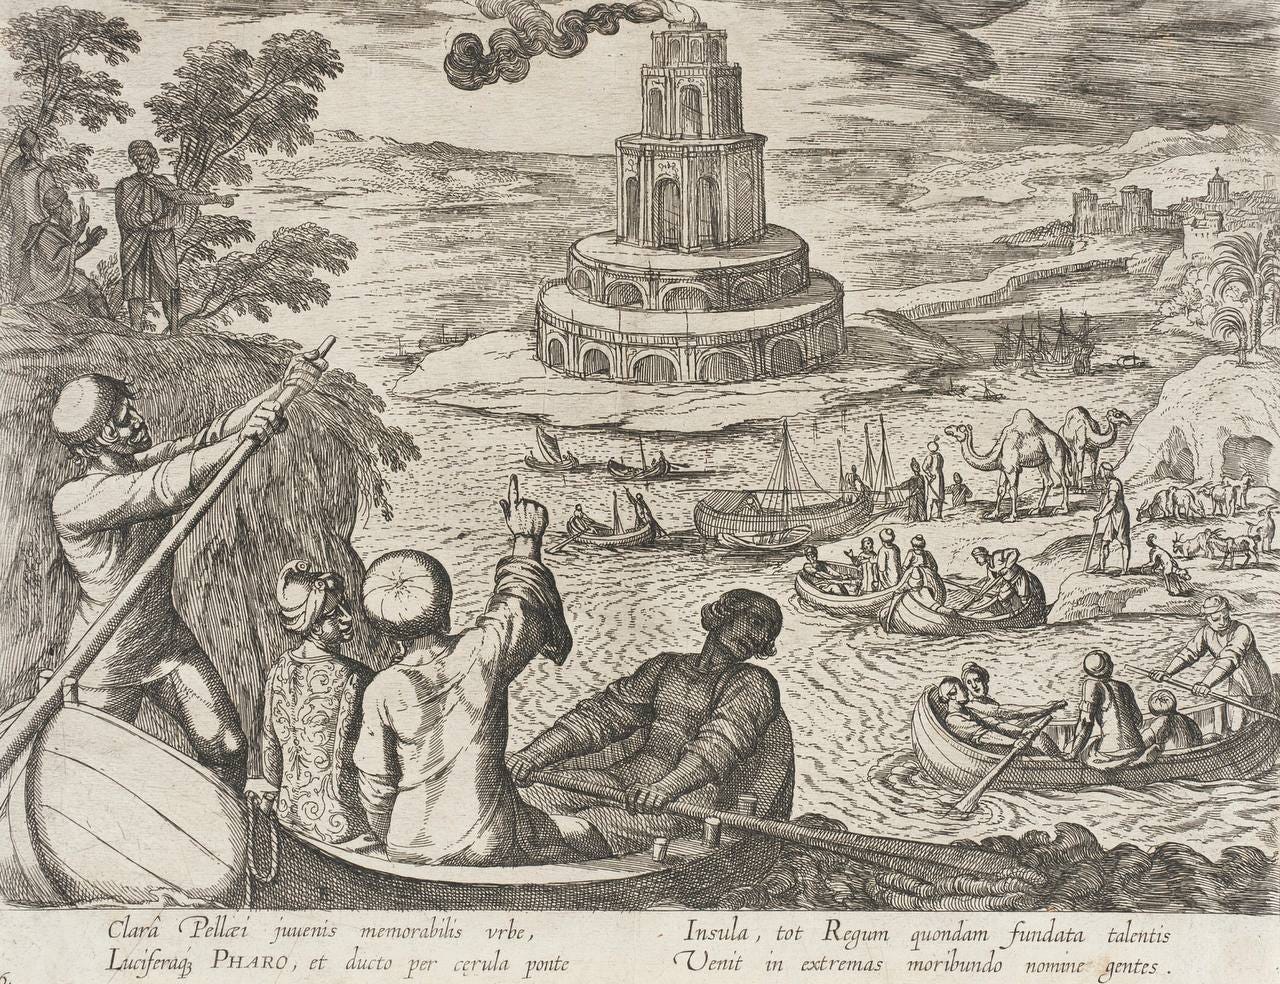 Clarâ Pellæi juuenis memorabilis vrbe,
Luciferaq́ꝫ PHARO, et ducto per cęrula ponte
Insula, tot Regum quondam fundata talentis
Uenit in extremas moribundo nomine gentes.
6.